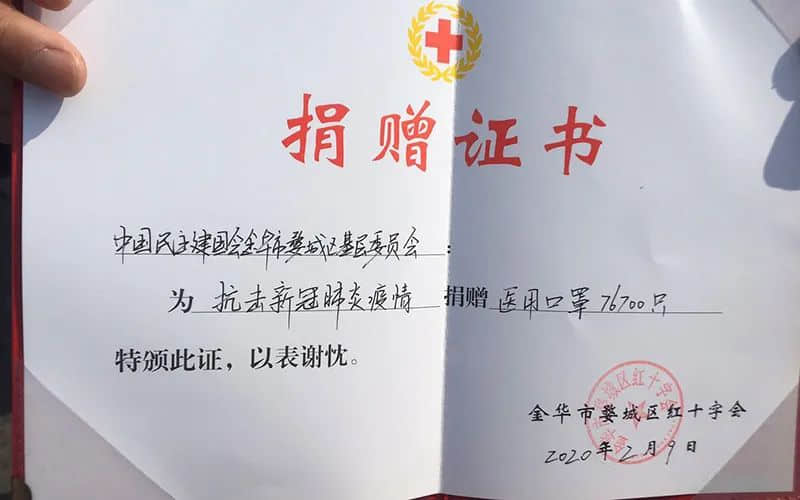 捐赠证书
中国民主建国会金华市婺城区基层委员会：
为 抗击新冠肺炎疫情 捐赠 医用口罩76700只
特颁此证，以表谢忱。
金华市婺城区红十字会
2020年2月9日